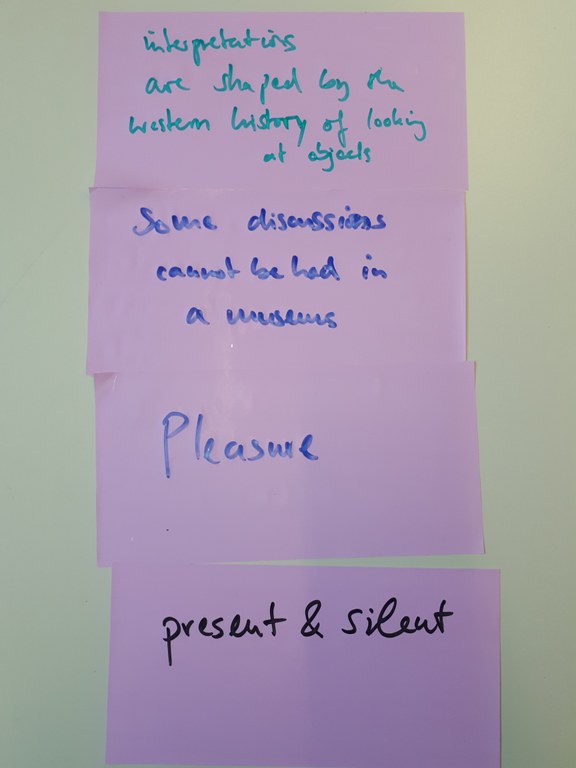 interpretations
are shaped by the
western history of looking
at objects
Some discussions
cannot be had in
a museums
Pleasure
present & silent